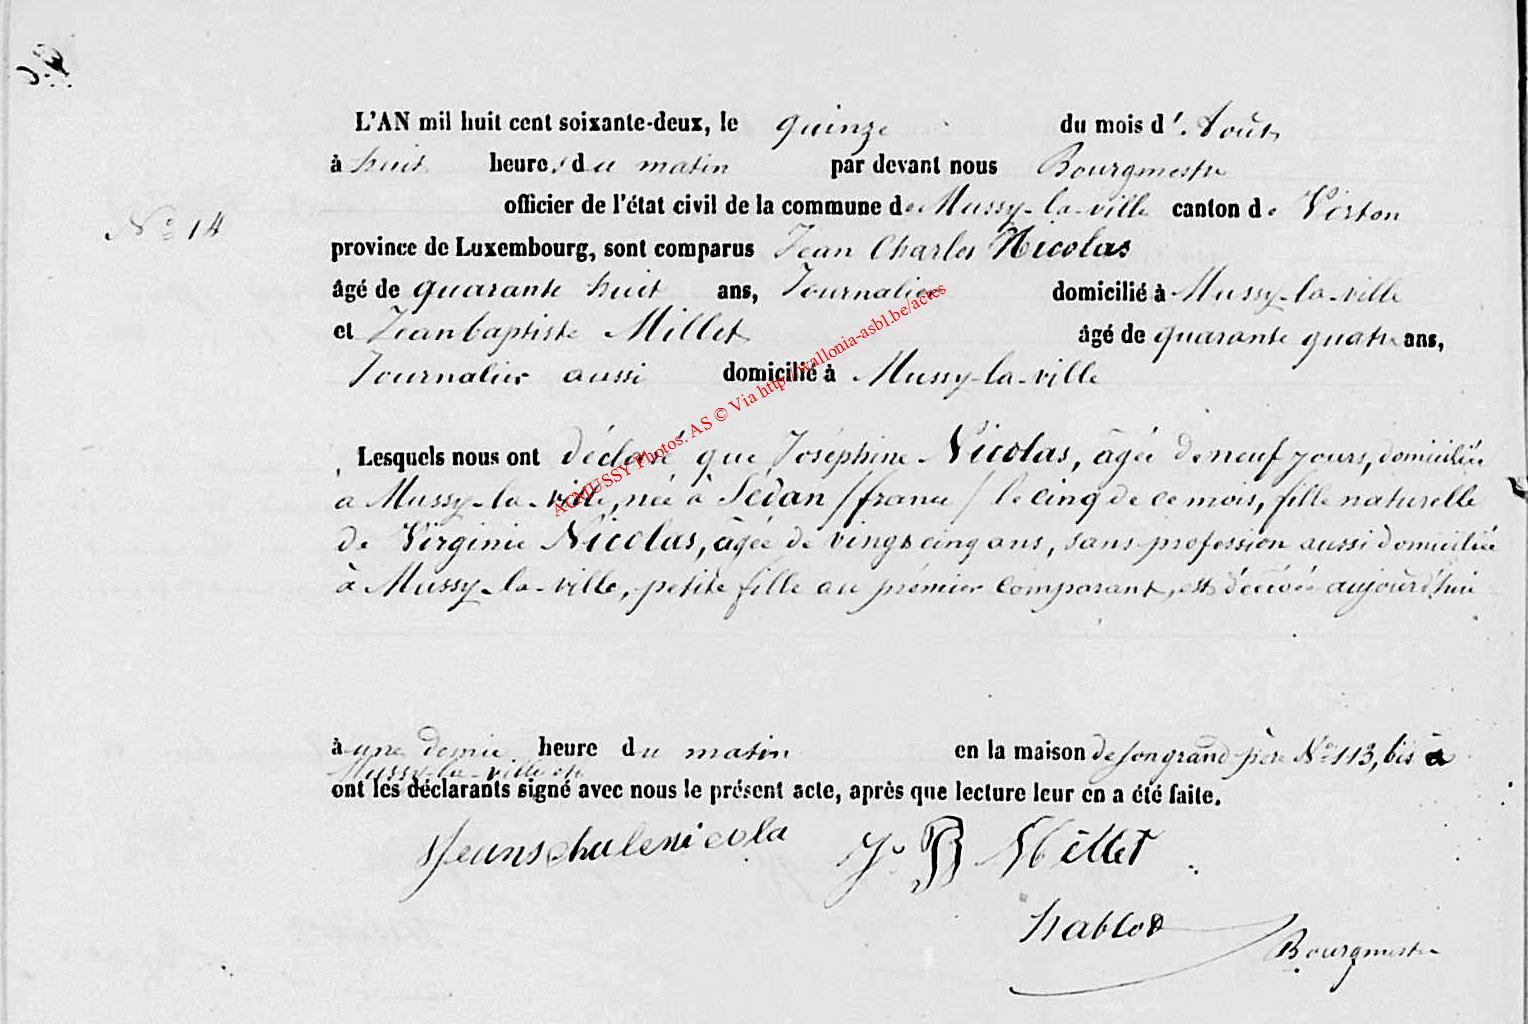 L'AN mil huit cent soixante-deux, le quinze du mois d'Août
à huit heures du matin par devant nous Bourgmestre
officier de l'état civil de la commune de Mussy-la-ville canton de Virton
N° 14
province de Luxembourg, sont comparus Jean Charles Nicolas
âgé de quarante huit ans, Journalier domicilié à Mussy-la-ville
et Jeanbaptiste Millet âgé de quarante quatre ans,
Journalier aussi domicilié à Mussy-la-ville
Lesquels nous ont déclaré que Joséphine Nicolas, âgée de neuf jours, domiciliée
a Mussy-la-ville, née à Sédan /france/ le cinq de ce mois, fille naturelle
de Virginie Nicolas, âgée de vingt cinq ans, sans profession aussi domiciliée
à Mussy-la-ville, petite fille au prémier Comparant, est décédée aujourd'hui
à une demie heure du matin en la maison de son grand père N° 113, bis à
Mussy-la-ville et
ont les déclarants signé avec nous le présent acte, après que lecture leur en a été faite.
Jeanschalenicola J. B Millet
hablot Bourgmestre
ACMUSSY Photos: AS © Via http://wallonia-asbl.be/actes